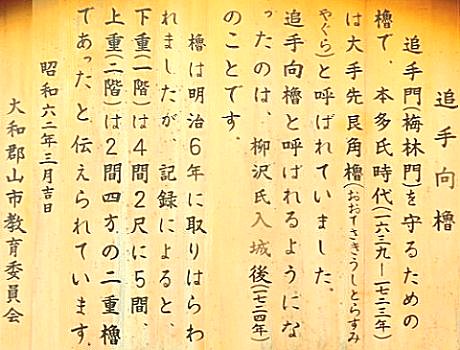 追手向櫓
追手門(梅林門)を守るための
櫓で、本多氏時代(一六三九ー一七二三年)
は大手先艮角櫓(おおてさきうしとらすみ
やぐら)と呼ばれていました。
追手向櫓と呼ばれるようにな
ったのは、柳沢氏入城後(一七二四年)
のことです。
櫓は明治6年に取りはらわ
れましたが、記録によると、
下重(一階)は4間2尺に5間、
上重(二階)は2間四方の二重櫓
であったと伝えられています。
昭和六二年三月吉日
大和郡山市教育委員会